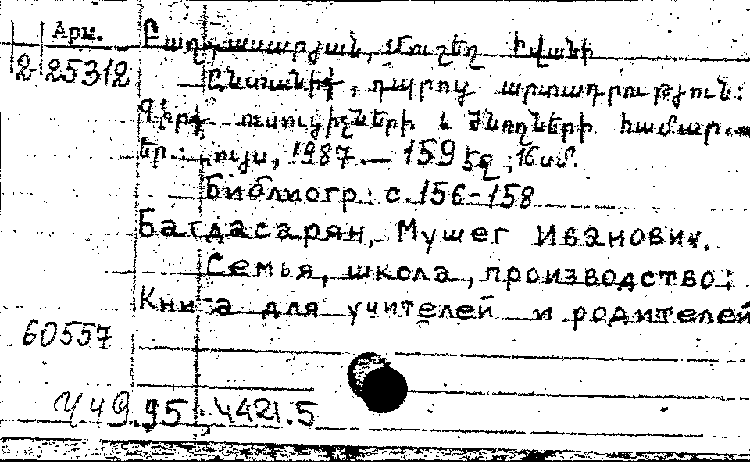 Арм.
2 25312
Բաղդասարյան, Մուշեղ Իվանի
Ընտանիք, դպրոց արտադրություն:
Գիրք ուսուցիչների և ծնողների համար.—
Եր.: Լույս, 1987.— 159 էջ; 16 սմ.
Библиогр: с. 156-158
Багдасарян, Мушег Иванович.
Семья, школа, производство:
Книга для учителей и родителей
60557
Ч 49.95; 4421.5